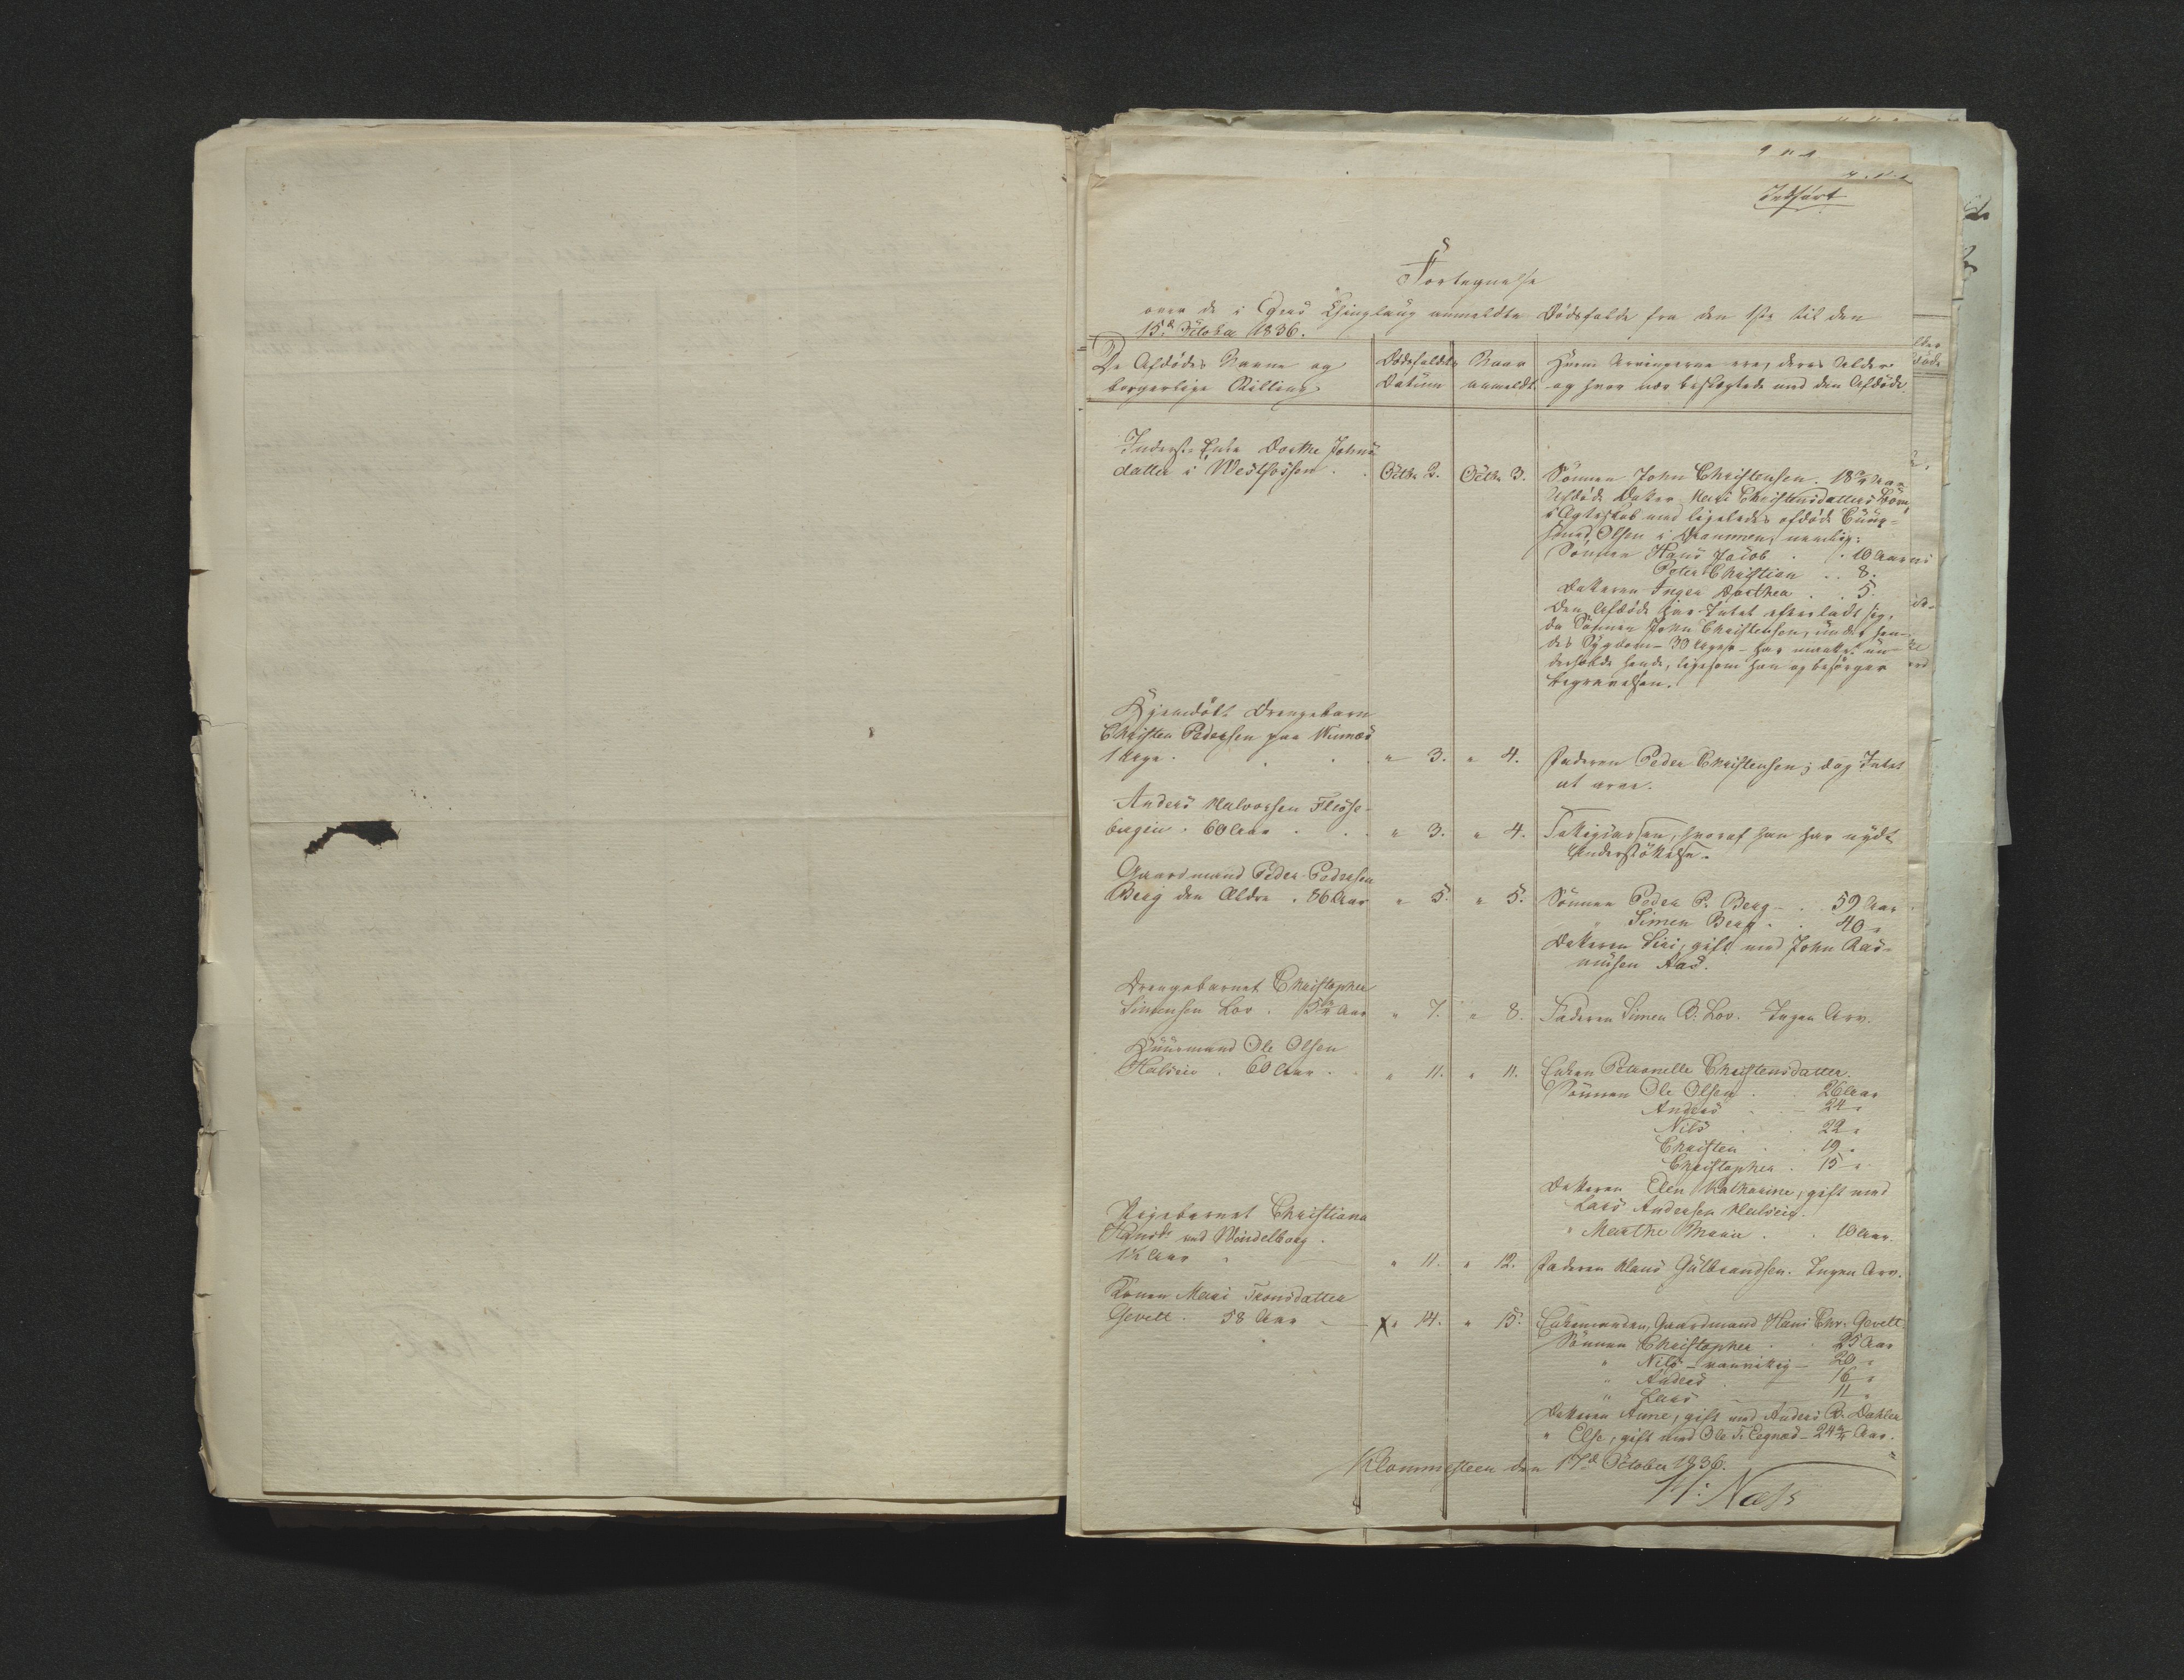 Indført
Fortegnelse
over de i Egers Thinglaug anmeldte Dødsfalde fra den 1ste til den
15de October 1836.
De Afdødes Navne og
borgerlige Stilling
Dødsfaldets
Datum
Naar
anmeldt
Hvem Arvingerne ere, deres Alder
og hvor nær beslægtede med den Afdøde.
Inderst Enke Dorthe Johns
datter i Westfossen. Octbr 2. Octbr 3. Sønnen John Christensen. 18 3/4 Aar
Afdøde Datter Mari Christensdatters Børn,
i Ægteskab med ligeledes afdøde
Olsen i Drammen, nemlig:
Sønnen Hans Jacob . . 10 Aar
Peter Christian . . 8.
Datteren Inger Dorthea . . 5.
Den Afdøde har Intet efterladt sig,
da Sønnen John Christensen, under hen-
des Sygdom - 30 Uger - har maattet un-
derholde hende, ligesom han og besørger
Begravelsen.
Hjemdøbt Drengebarn
Christen Pedersen paa
1 Uge. " 3. " 4. Faderen Peder Christensen; dog Intet
at arve.
Anders Halvorsen Fløse-
bergin. 60 Aar . . " 3. " 4. Fattigvæsen, hvoraf han har nydt
Understøttelse.
Gaardmand Peder Pedersen
Berg den Ældre. 86 Aar " 5. " 5. Sønnen Peder P. Berg . . 59 Aar
" Simen Berg . . 40 "
Datteren Siri, gift med John Ras-
musen Aas.
Drengebarnet Christopher
Simensen Lov. Aar " 7. " 8. Faderen Simen B. Lov. Ingen Arv.
Huusmand Ole Olsen
Halseie. 60 Aar . " 11. " 11. Enken Petronelle Christensdatter.
Sønnen Ole Olsen . . 26 Aar
Anders . . 24 "
Nils . . 22 "
Christen . . 19 "
Christopher . 15 "
Datteren Elen Katharine, gift med
Lars Andersen Halseie.
" Marthe Maria . . 10 Aar.
Pigebarnet Christiana
Hansd. ved
1 1/2 Aar " 11. " 12. Faderen Hans Gulbrandsen. Ingen Arv.
Konen Mari Tronsdatter
Gevelt. 58 Aar X " 14. " 15. Enkemanden, Gaardmand Hans Chr. Gevelt
Sønnen Christopher . . 25 Aar
" Nils - vanvittig - 20 "
" Anders 16 "
" Lars 11 "
Datteren Anne, gift med Anders R. Dahler
" Else, gift med Ole T. Eegnæs - 24 3/4 Aar.
Klommesteen den 17de October 1836.
H: Næss